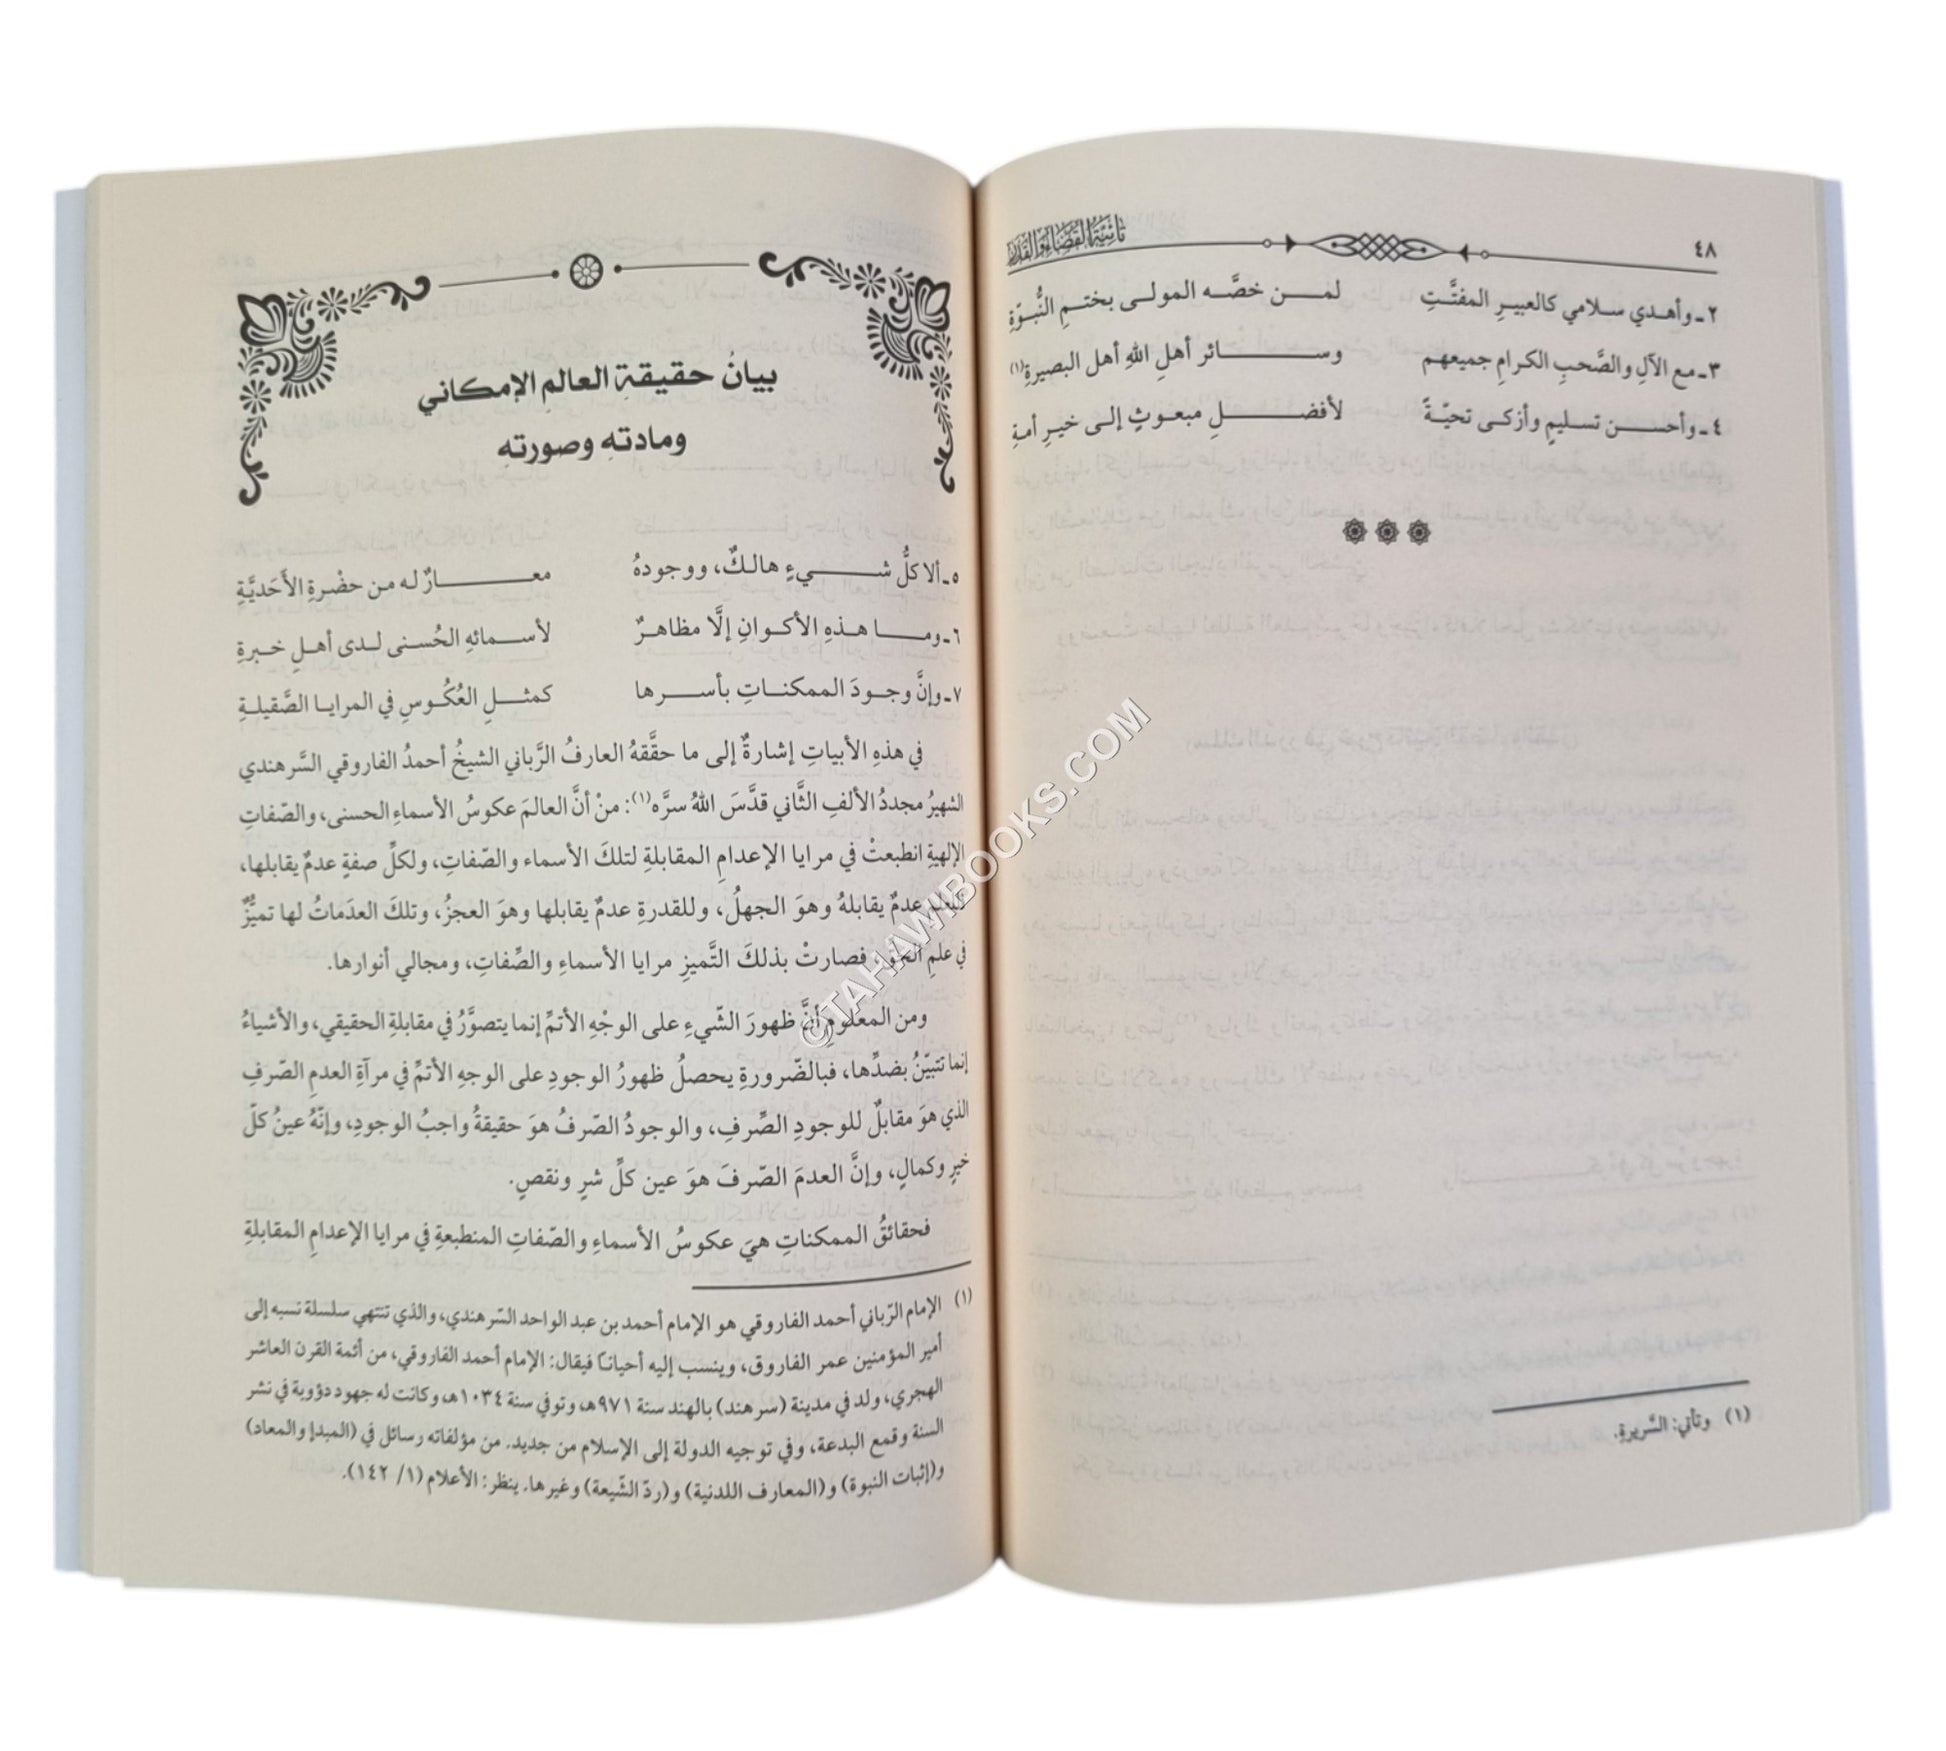 ٤٨
تائية القضاء والقدر
٢ـ وأهـدي سـلامي كالعبيـرِ المفتَّـتِ لمـــن خصَّـه المولـى بختـمِ النُّبـوّةِ
٣ـ مـع الآلِ والصَّحبِ الكرامِ جميعهم وســـــائر أهلِ اللهِ أهل البصيرةِ(١)
٤ـ وأحســـن تسـليمٍ وأزكـى تحيّـةً لأفضـــلِ مبعـوثٍ إلـى خيـرِ أمةِ
(١) وتأتي: السَّريرةِ.
بيانُ حقيقةِ العالمِ الإمكاني
ومادتهِ وصورتهِ
٥ـ ألا كلُّ شــــيءٍ هالكٌ، ووجودهُ معـــــارٌ له من حضْرةِ الأَحَديَّةِ
٦ـ ومـــا هـذهِ الأكـوانِ إلَّا مظاهـرٌ لأسـمائهِ الحُسنى لـدى أهـلِ خبـرةِ
٧ـ وإنَّ وجـودَ الممكنـاتِ بأسـرها كمثـلِ العُكُـوسِ في المرايـا الصَّقيلـةِ
في هذهِ الأبياتِ إشارةٌ إلى ما حقَّقهُ العارفُ الرَّباني الشيخُ أحمدُ الفاروقي السَّرهندي
الشهيرُ مجددُ الألفِ الثَّاني قدَّسَ اللهُ سرَّه(١): منْ أنَّ العالمَ عكوسُ الأسماءِ الحسنى، والصّفاتِ
الإلهيةِ انطبعتْ في مرايا الإعدامِ المقابلةِ لتلكَ الأسماء والصّفاتِ، ولكلِّ صفةٍ عدمٌ يقابلها،
فللعلم عدمٌ يقابلهُ وهوَ الجهلُ، وللقدرةِ عدمٌ يقابلها وهوَ العجزُ، وتلكَ العدَماتُ لها تميُّزٌ
في علمِ الحقِّ، فصارتْ بذلكَ التَّميزِ مرايا الأسماءِ والصِّفاتِ، ومجالي أنوارها.
ومن المعلومِ أنَّ ظهورَ الشّيءِ على الوجْهِ الأتمِّ إنما يتصوَّرُ في مقابلةِ الحقيقي، والأشياءُ
إنما تتبيّنُ بضدِّها، فبالضّرورةِ يحصلُ ظهورُ الوجودِ على الوجهِ الأتمِّ في مرآةِ العدمِ الصّرفِ
الذي هوَ مقابلٌ للوجودِ الصِّرفِ، والوجودُ الصّرفُ هوَ حقيقةُ واجبُ الوجودِ، وإنّهُ عينُ كلّ
خيرٍ وكمالٍ، وإنَّ العدمَ الصّرفَ هوَ عين كلِّ شرٍ ونقصٍ.
فحقائقُ الممكناتِ هيَ عكوسُ الأسماءِ والصّفاتِ المنطبعةِ في مرايا الإعدامِ المقابلةِ
(١) الإمام الرّباني أحمد الفاروقي هو الإمام أحمد بن عبد الواحد السّرهندي، والذي تنتهي سلسلة نسبه إلى
أمير المؤمنين عمر الفاروق، وينسب إليه أحيانًا فيقال: الإمام أحمد الفاروقي، من أئمة القرن العاشر
الهجري، ولد في مدينة (سَرهند) بالهند سنة ٩٧١هـ، وتوفي سنة ١٠٣٤هـ، وكانت له جهود دؤوبة في نشر
السنة وقمع البدعة، وفي توجيه الدولة إلى الإسلام من جديد. من مؤلفاته رسائل في (المبدإ والمعاد)
و(إثبات النبوة) و(المعارف اللدنية) و(ردّ الشّيعة) وغيرها. ينظر: الأعلام (١/ ١٤٢).
©TAHAWIBOOKS.COM